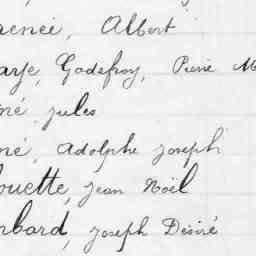 aenei, Albert
arje, Godefroy, Pierre M
né, Jules
né, Adolphe Joseph
ouette, Jean Noël
mbard, Joseph Désiré